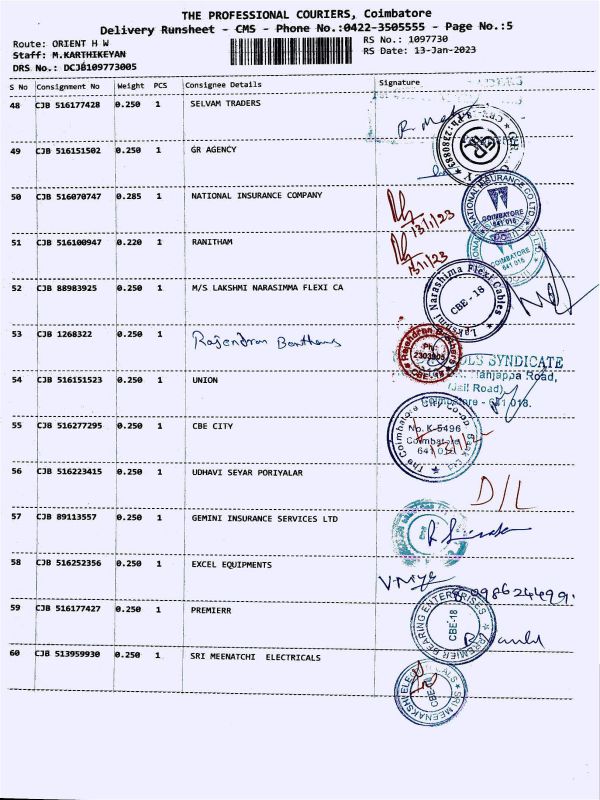 THE PROFESSIONAL COURIERS, Coimbatore
Delivery Runsheet - CMS - Phone No.:0422-3505555 - Page No.:5
Route: ORIENT H W RS No.: 1097730
Staff: M.KARTHIKEYAN RS Date: 13-Jan-2023
DRS No.: DCJB109773005
S No Consignment No Weight PCS Consignee Details Signature
48 CJB 516177428 0.250 1 SELVAM TRADERS
49 CJB 516151502 0.250 1 GR AGENCY
50 CJB 516070747 0.285 1 NATIONAL INSURANCE COMPANY
13/1/23
NATIONAL INSURANCE CO.LTD
COIMBATORE
641 018
51 CJB 516100947 0.220 1 RANITHAM
13/1/23
COIMBATORE
641 018
52 CJB 88983925 0.250 1 M/S LAKSHMI NARASIMMA FLEXI CA
Lakshmi Narashima Flexi Cables
CBE - 18
53 CJB 1268322 0.250 1 Rajendran Bonthews
Rajendran Brothers
Ph:
2303805
CBE-18
54 CJB 516151523 0.250 1 UNION
OLS SYNDICATE
anjappa Road,
(Jail Road)
Coimbatore - 641 018.
55 CJB 516277295 0.250 1 CBE CITY
The Coimbatore City Co-op Bank Ltd
No. K-5496
Coimbatore
56 CJB 516223415 0.250 1 UDHAVI SEYAR PORIYALAR
D/L
57 CJB 89113557 0.250 1 GEMINI INSURANCE SERVICES LTD
58 CJB 516252356 0.250 1 EXCEL EQUIPMENTS
59 CJB 516177427 0.250 1 PREMIERR
PREMIER BEARING ENTERPRISES
CBE-18
60 CJB 513959930 0.250 1 SRI MEENATCHI ELECTRICALS
SRI MEENAKSHI ELECTRICALS
CBE